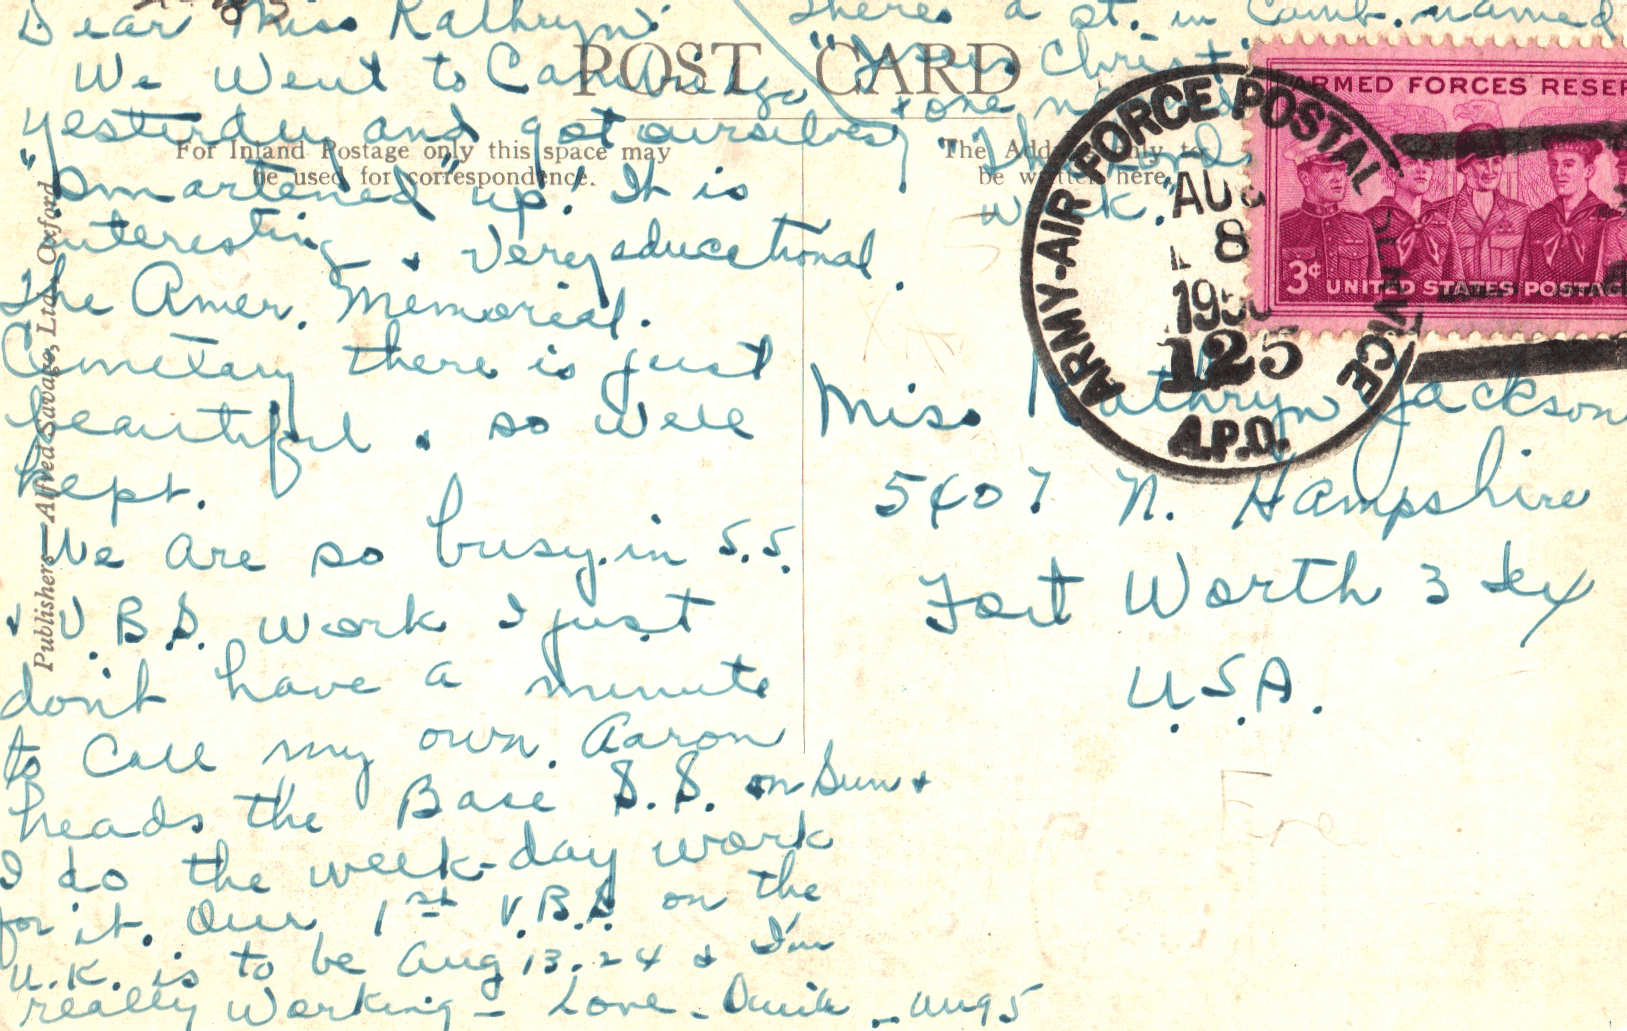 Dear Miss Kathryn
We went to Cambridge
yesterday and got ourselves
"smartened" up. It is
interesting & very educational.
The Amer. Memorial.
Cemetary there is just
beautiful & so well
kept.
We are so busy in S.S.
& V.B.S. work I just
don't have a minute
to call my own. Aaron
heads the Base S.S. on Sun &
I do the week-day work
for it. Our 1st V.B.S. on the
U.K. is to be Aug 13-24 & I'm
really working - Love - Aug 5
There's a st. in Camb. named
"Jesus Christ"
& one named
week.
POST CARD
For Inland Postage only this space may
be used for correspondence.
The Address only to
be written here.
Publishers—Alfred Savage, Ltd., Oxford
ARMY-AIR FORCE POSTAL SERVICE
AUG
8
125
A.P.O.
ARMED FORCES RESER
3¢ UNITED STATES POSTAG
Miss Kathryn Jackson
5407 N. Hampshire
Fort Worth 3 Tex
U.S.A.